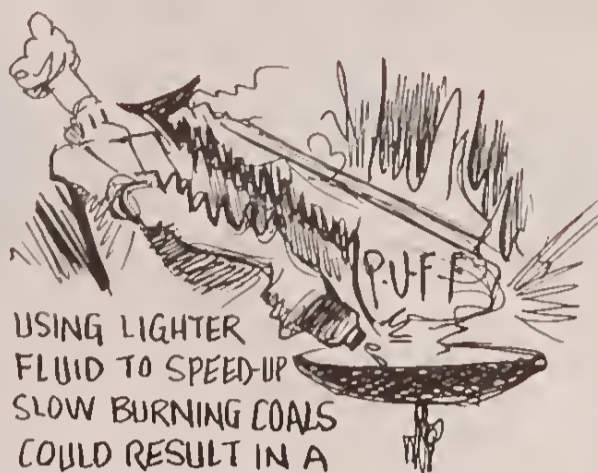 P.U.F.F
USING LIGHTER
FLUID TO SPEED-UP
SLOW BURNING COALS
COULD RESULT IN A